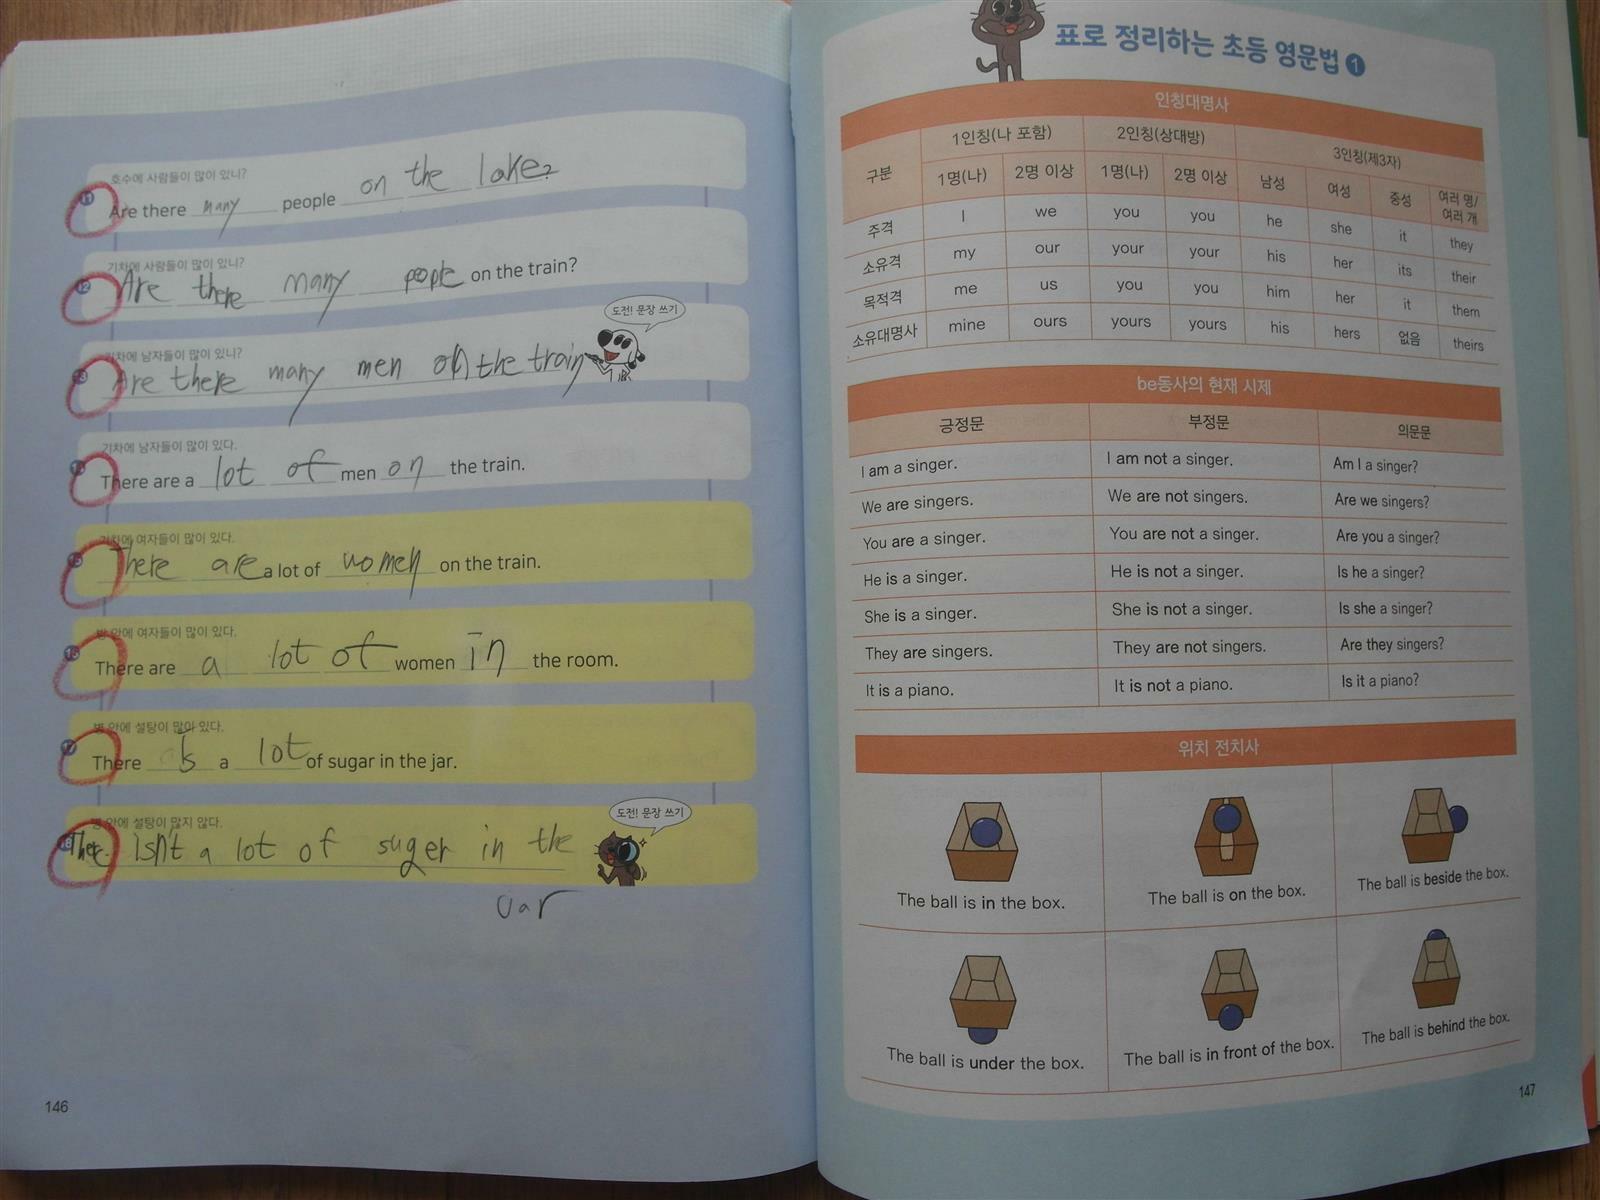 호수에 사람들이 많이 있니?
11 Are there many people on the lake?
기차에 사람들이 많이 있니?
12 Are there many people on the train?
기차에 남자들이 많이 있니?
도전! 문장 쓰기
13 Are there many men on the train
기차에 남자들이 많이 있다.
14 There are a lot of men on the train.
기차에 여자들이 많이 있다.
15 There are a lot of women on the train.
방 안에 여자들이 많이 있다.
16 There are a lot of women in the room.
병 안에 설탕이 많아 있다.
17 There is a lot of sugar in the jar.
병 안에 설탕이 많지 않다.
도전! 문장 쓰기
18 There isn't a lot of suger in the
Jar
146
표로 정리하는 초등 영문법 1
인칭대명사
구분 1인칭(나 포함) 2인칭(상대방) 3인칭(제3자)
1명(나) 2명 이상 1명(나) 2명 이상 남성 여성 중성 여러 명/여러 개
주격 I we you you he she it they
소유격 my our your your his her its their
목적격 me us you you him her it them
소유대명사 mine ours yours yours his hers 없음 theirs
be동사의 현재 시제
긍정문 부정문 의문문
I am a singer. I am not a singer. Am I a singer?
We are singers. We are not singers. Are we singers?
You are a singer. You are not a singer. Are you a singer?
He is a singer. He is not a singer. Is he a singer?
She is a singer. She is not a singer. Is she a singer?
They are singers. They are not singers. Are they singers?
It is a piano. It is not a piano. Is it a piano?
위치 전치사
The ball is in the box. The ball is on the box. The ball is beside the box.
The ball is under the box. The ball is in front of the box. The ball is behind the box.
147